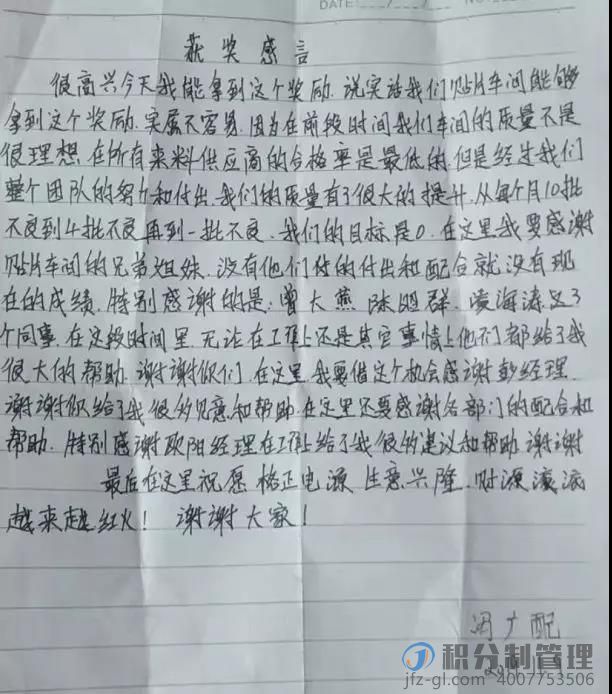 DATE:
获奖感言
很高兴今天我能拿到这个奖励. 说实话我们贴片车间能够
拿到这个奖励. 实属不容易. 因为在前段时间我们车间的质量不是
很理想. 在所有来料供应商的合格率是最低的. 但是经过我们
整个团队的努力和付出. 我们的质量有了很大的提升. 从每个月10批
不良到4批不良再到一批不良. 我们的目标是0. 在这里我要感谢
贴片车间的兄弟姐妹. 没有他们的付出和配合就没有现
在的成绩. 特别感谢的是: 曾大燕 陈明群. 凌海涛这3
个同事. 在这段时间里. 无论在工作上还是其它事情上他们都给了我
很大的帮助. 谢谢你们. 在这里我要借这个机会感谢彭经理.
谢谢你给了我很多意见和帮助. 在这里还要感谢各部门的配合和
帮助. 特别感谢欧阳经理在工作上给了我很多建议和帮助. 谢谢
最后在这里祝愿 格正电源 生意兴隆. 财源滚滚
越来越红火! 谢谢大家!
广配
积分制管理
jfz-gl.com 4007753506